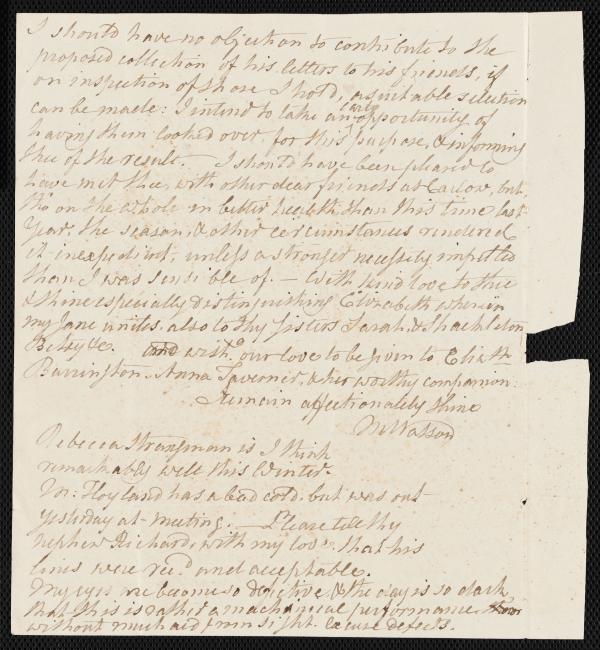 I should have no objection to contribute to the
proposed collection of his letters to his friends, if
on inspection of those I hold, a suitable selection
can be made: I intend to take an early opportunity of
having them looked over for this purpose, & informing
thee of the result. — I should have been pleased to
have met thee, with other dear friends at Carlow, but
tho' on the whole in better health than this time last
Year, the season, & other circumstances rendered
it inexpedient, unless a stronger necessity impelled
than I was sensible of. — With kind love to thee
& thine especially distinguishing Elizabeth wherein
my Jane unites. also to thy Sisters Sarah, & Shackleton
Betsy &c. and wish.g our love to be given to Eliz.th
Barrington, Anna Taverner, & her worthy companion:
remain affectionately thine
M Watson
Rebecca Strangman is I think
remarkably well this Winter.
Jos: Hoyland has a bad cold. but was out
yesterday at meeting. — Please tell thy
nephew Richard, with my love, that his
lines were rec.d and acceptable.
My eyes are become so defective & the day is so dark,
that this is rather a mechanical performance
without much aid from sight. Excuse defects.